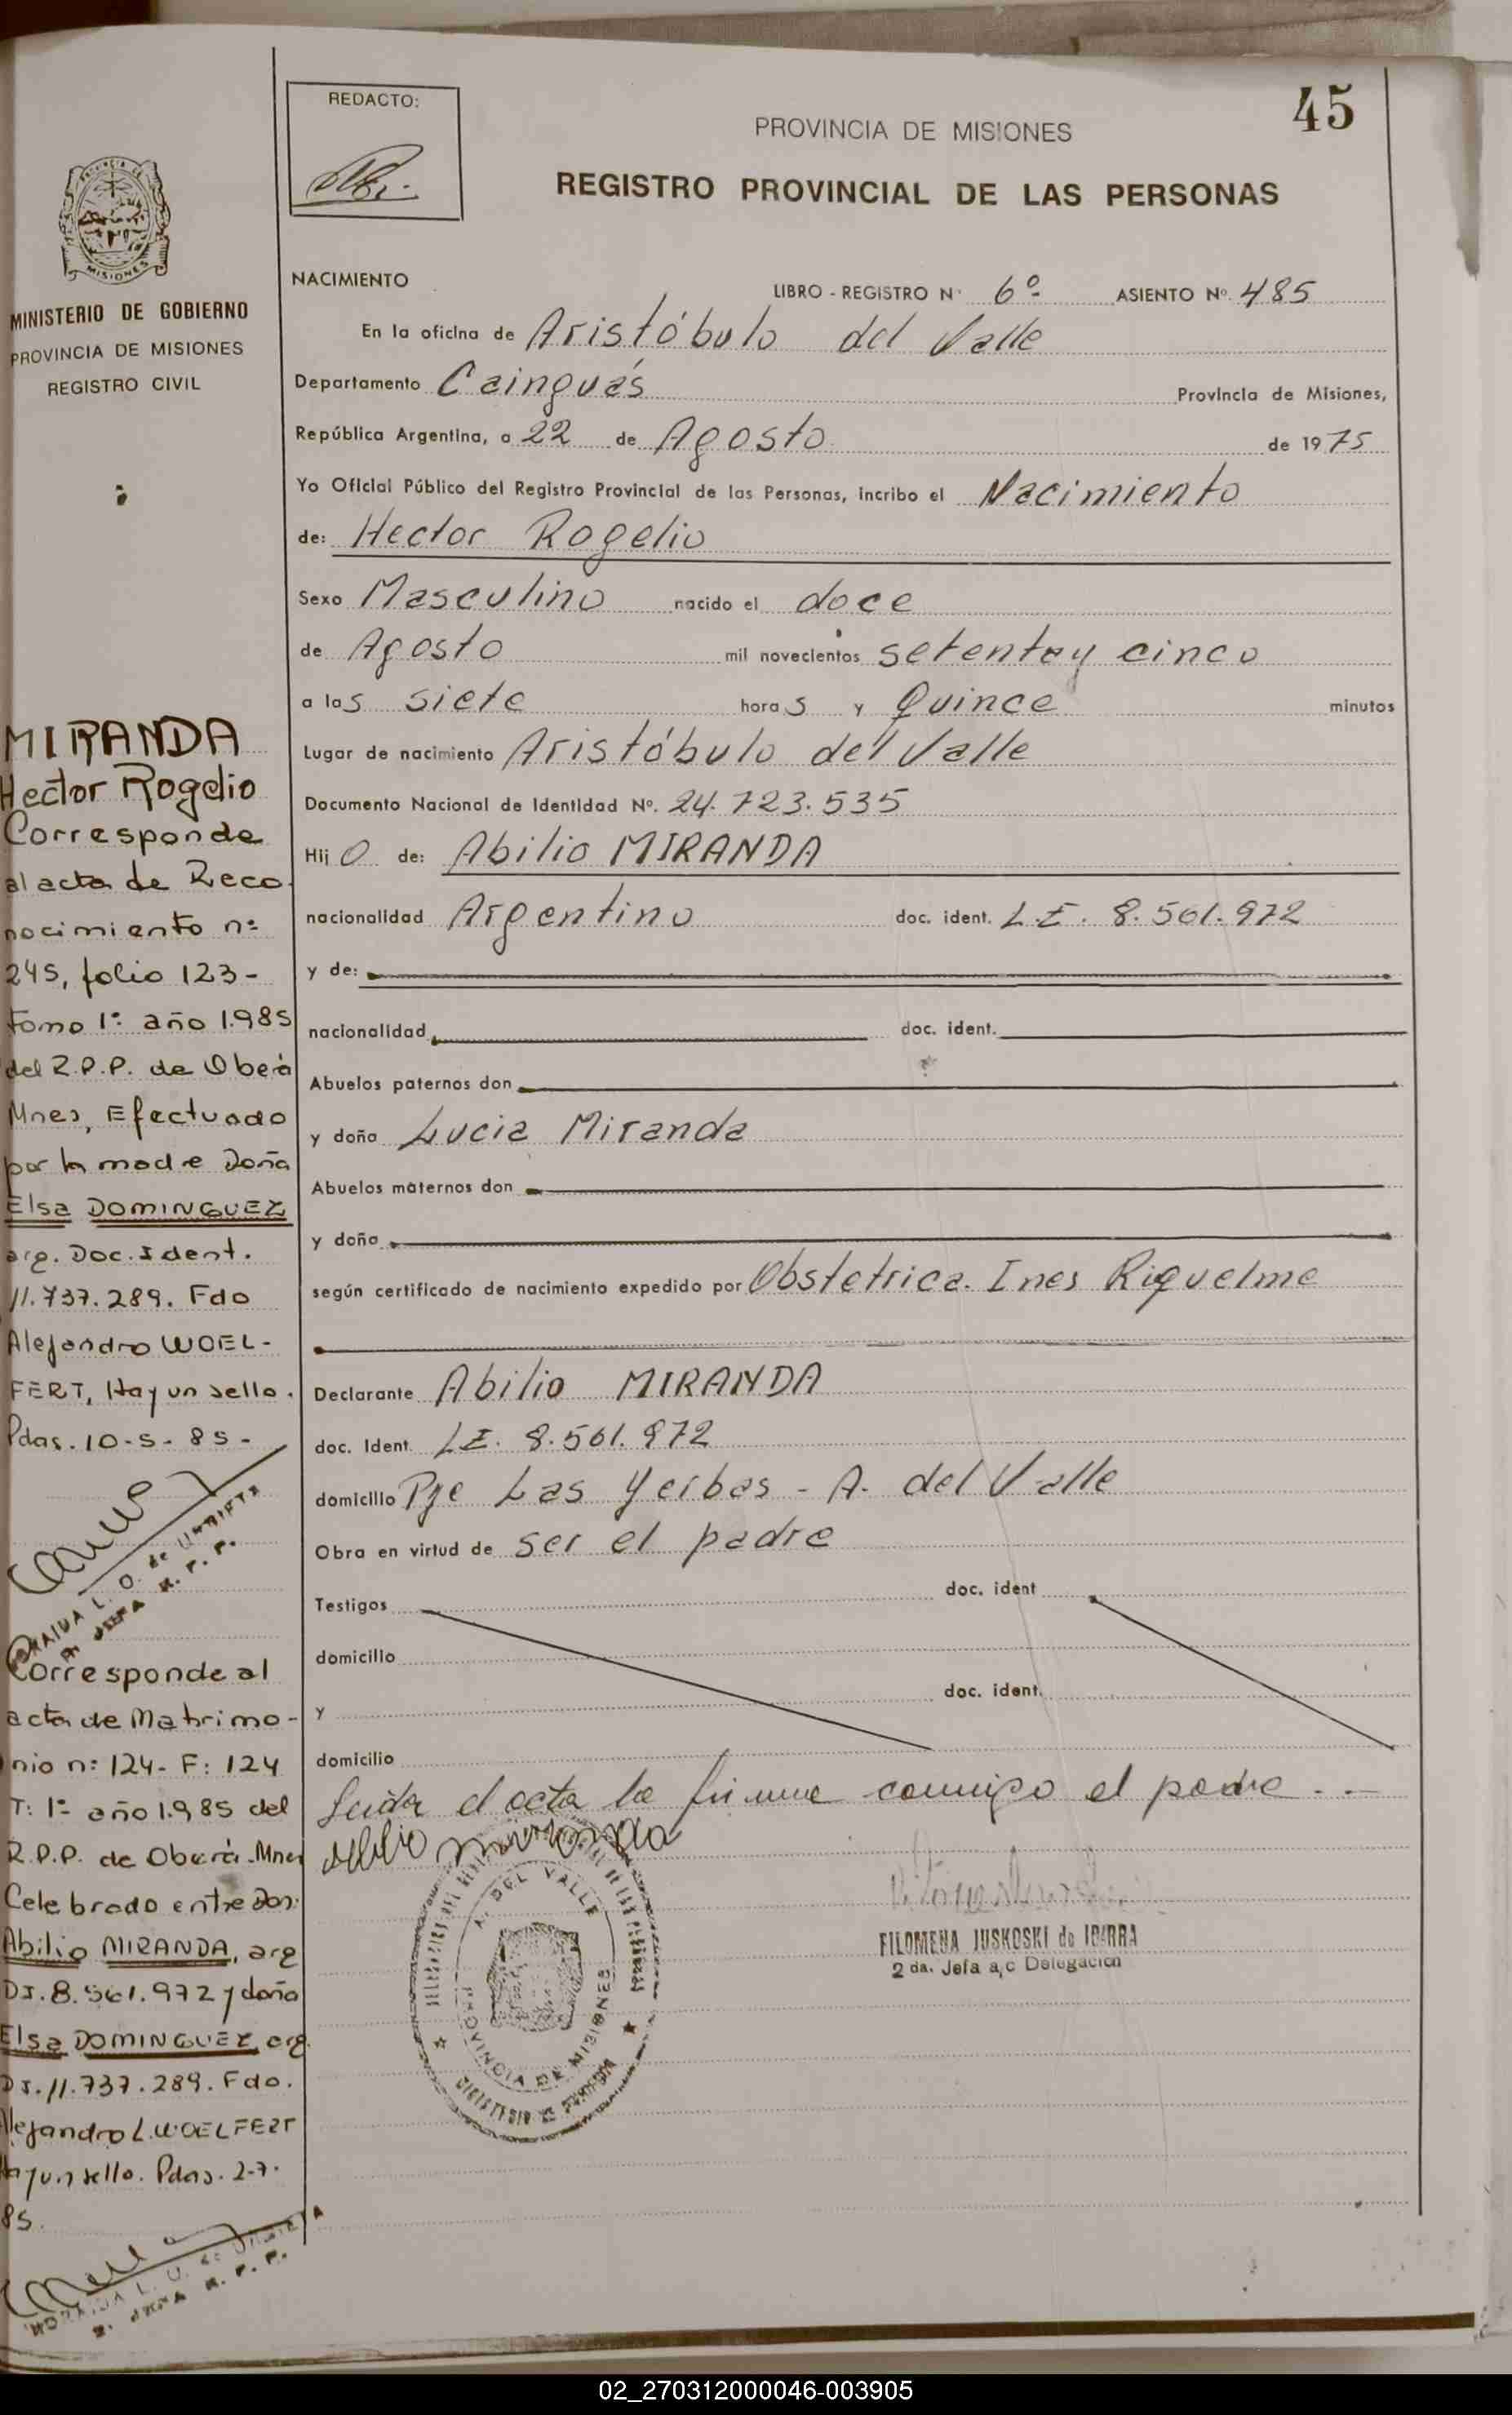 45
REDACTO:
PROVINCIA DE MISIONES
REGISTRO PROVINCIAL DE LAS PERSONAS
MISIONES
MINISTERIO DE GOBIERNO
PROVINCIA DE MISIONES
REGISTRO CIVIL
NACIMIENTO
LIBRO - REGISTRO N° 6º ASIENTO Nº 485
En la oficina de Aristóbulo del Valle
Departamento Cainguás Provincia de Misiones,
República Argentina, a 22 de Agosto de 1975
Yo Oficial Público del Registro Provincial de las Personas, incribo el Nacimiento
de: Hector Rogelio
Sexo Masculino nacido el doce
de Agosto mil novecientos setenta y cinco
a las siete horas y Quince minutos
Lugar de nacimiento Aristóbulo del Valle
Documento Nacional de Identidad Nº. 24.723.535
Hijo de: Abilio MIRANDA
nacionalidad Argentino doc. ident. L.E. 8.561.972
y de:
nacionalidad doc. ident.
Abuelos paternos don
y doña Lucia Miranda
Abuelos maternos don
y doña
según certificado de nacimiento expedido por Obstetrica. Ines Riquelme
Declarante Abilio MIRANDA
doc. Ident. L.E. 8.561.972
domicilio Pje Las Yerbas - A. del Valle
Obra en virtud de ser el padre
Testigos doc. ident
domicilio
y doc. ident.
domicilio
Leida el acta la firma conmigo el padre ..-
Abilio Miranda
A. DEL VALLE
PROVINCIA DE MISIONES
FILOMENA JUSKOSKI de IBARRA
2 da. Jefa a/c Delegacion
MIRANDA
Hector Rogelio
Corresponde
al acta de Reco
nocimiento nº
245, folio 123-
tomo 1º año 1.985
del R.P.P. de Oberá
Mnes, Efectuado
por la madre Doña
Elsa DOMINGUEZ
arg. Doc. Ident.
11.737.289. Fdo
Alejandro WOEL-
FERT, Hay un sello.
Pdas. 10-5-85-
Corresponde al
acta de Matrimo-
nio nº 124- F: 124
T: 1º año 1.985 del
R.P.P. de Oberá-Mnes
Celebrado entre Don:
Abilio MIRANDA, arg
DI. 8.561.972 y doña
Elsa DOMINGUEZ arg.
DI. 11.737.289. Fdo.
Alejandro L. WOELFERT
Hay un sello. Pdas. 2-7-
85.
02_270312000046-003905